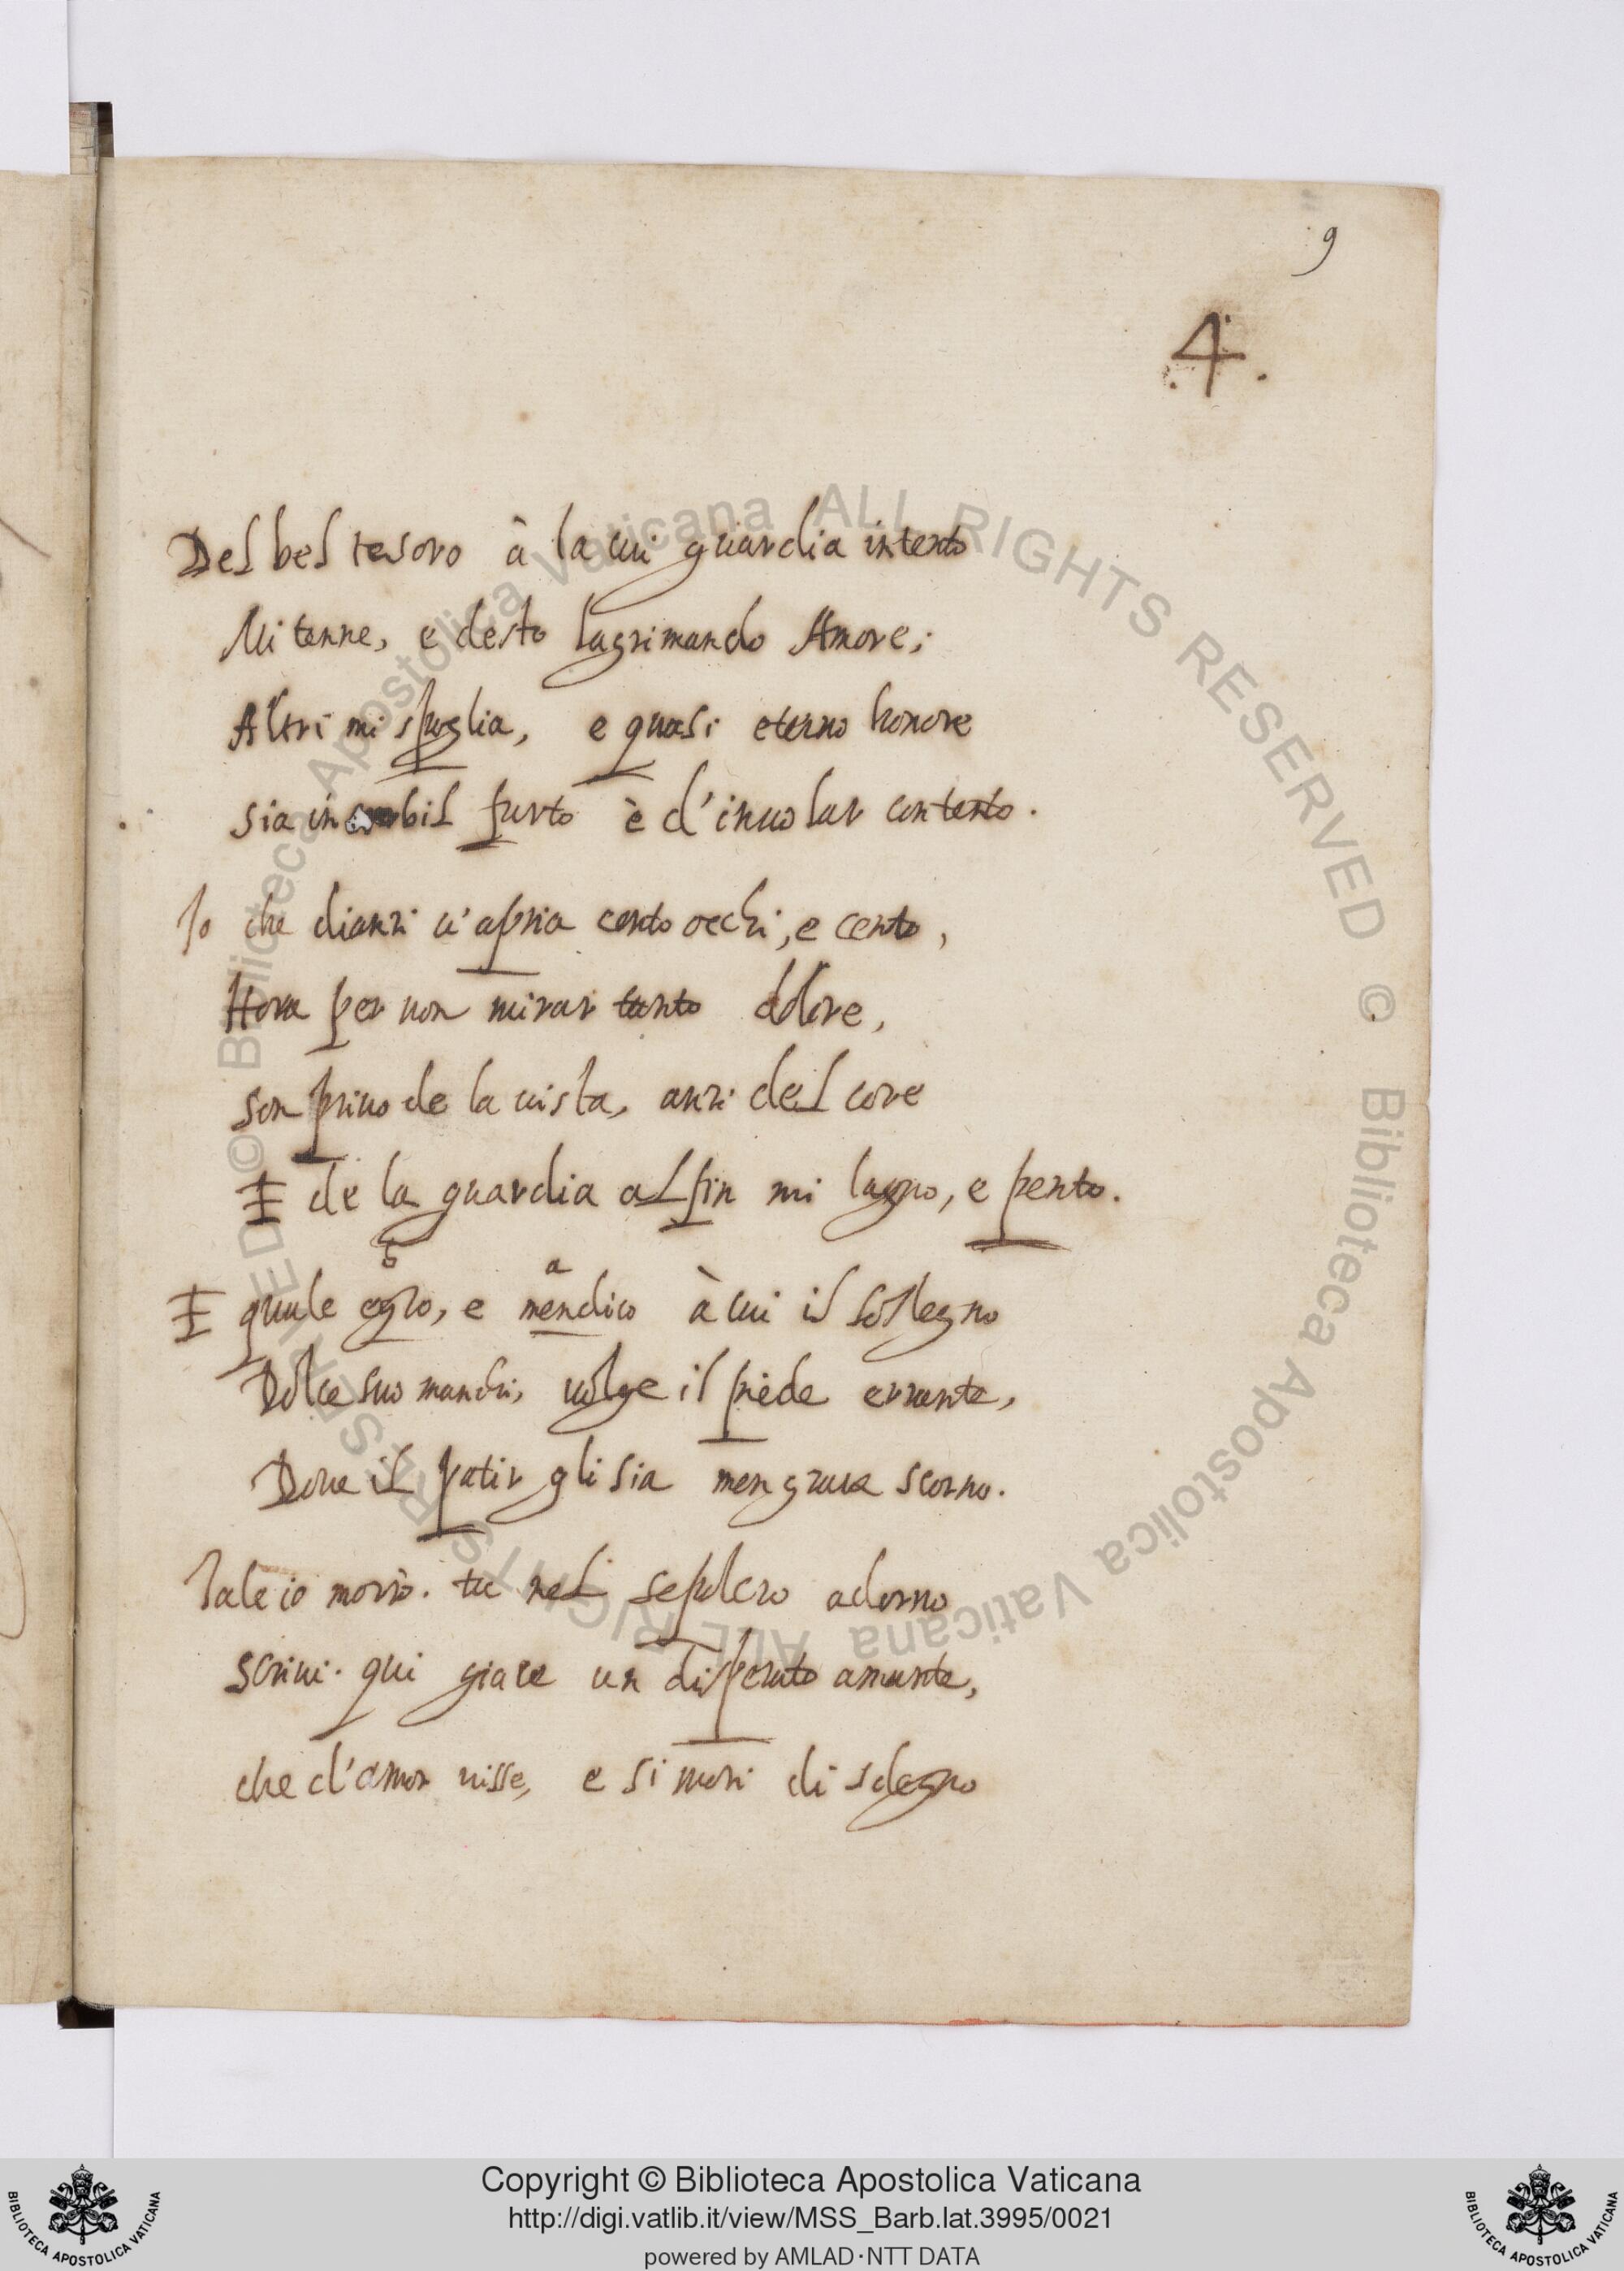 9
.4.
Del bel tesoro à la cui guardia intento
Mi tenne, e desto lagrimando Amore;
Altri mi spoglia, e quasi eterno honore
sia in nobil furto è d'inuolar contento.
Io che dianzi u'apria cento occhi, e cento,
Hora per non mirar tanto dolore,
son priuo de la uista, anzi del core
E de la guardia alfin mi lagno, e pento.
E quale egro, e mendico à cui il sostegno
a
Dolce suo manchi, uolge il piede errante,
Doue il patir gli sia men graue scorno.
Tale io morrò. tu nel sepolcro adorno
scriui. qui giace un disperato amante,
che d'amor uisse, e si morì di sdegno
Copyright © Biblioteca Apostolica Vaticana
http://digi.vatlib.it/view/MSS_Barb.lat.3995/0021
powered by AMLAD·NTT DATA
BIBLIOTECA APOSTOLICA VATICANA
BIBLIOTECA APOSTOLICA VATICANA
© Biblioteca Apostolica Vaticana ALL RIGHTS RESERVED
© Biblioteca Apostolica Vaticana ALL RIGHTS RESERVED